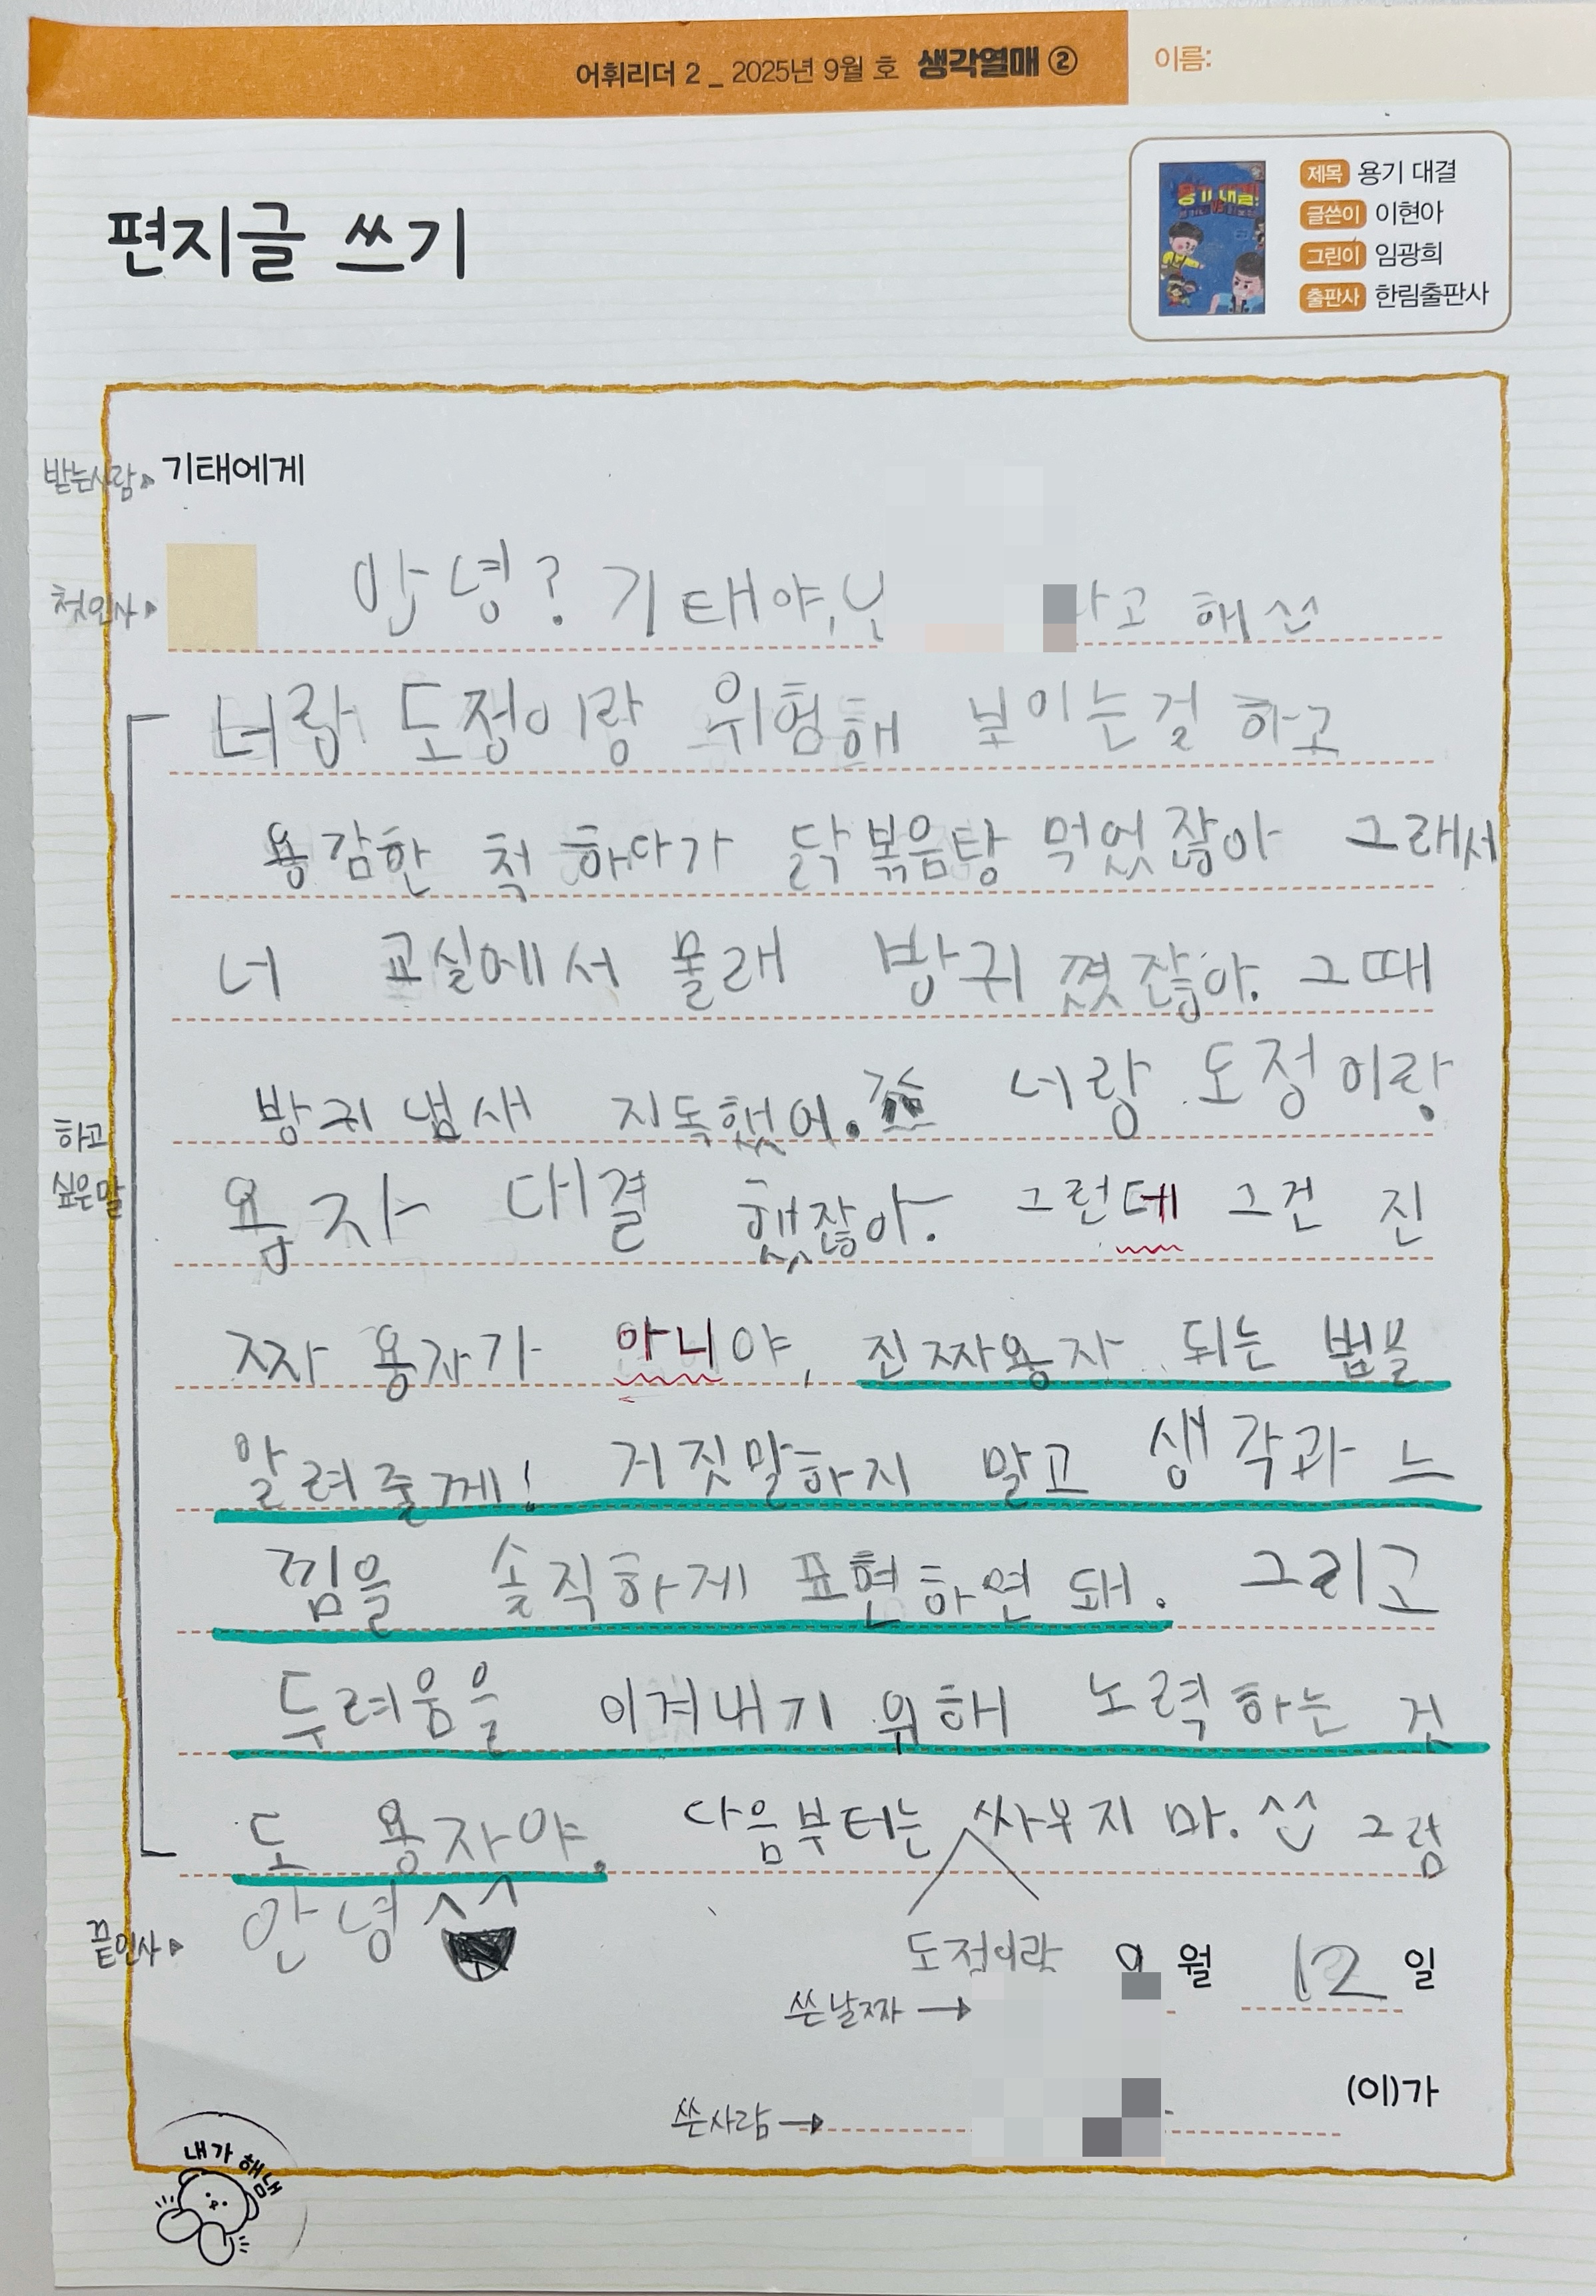 어휘리더 2 _ 2025년 9월 호 생각열매 ②
이름:
편지글 쓰기
제목 용기 대결
글쓴이 이현아
그린이 임광희
출판사 한림출판사
용기 대결
받는사람 ▷ 기태에게
첫인사 ▷ 안녕? 기태야, 고 해 ^^
너랑 도정이랑 위험해 보이는걸 하고
용감한 척 하다가 닭볶음탕 먹었잖아 그래서
너 교실에서 몰래 방귀 꼈잖아. 그때
방귀 냄새 지독했어. 너랑 도정이랑
하고
싶은말
용자 대결 했잖아. 그런데 그건 진
짜 용자가 아니야, 진짜용자 되는 법을
알려줄께! 거짓말하지 말고 생각과 느
낌을 솔직하게 표현하면 돼. 그리고
두려움을 이겨내기 위해 노력하는 것
도 용자야. 다음부터는 싸우지 마. ^^ 그럼
도정이랑
끝인사 ▷ 안녕^^
쓴날짜 → 9월 12일
쓴사람 → (이)가
내가 해냄